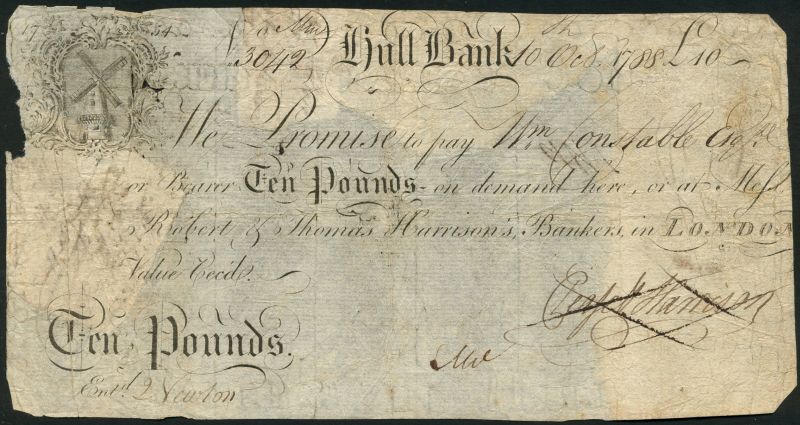 17 54
No 3042 Hull Bank 10th Octr. 1788 £10
We Promise to pay Wm Constable Esqre
or Bearer Ten Pounds on demand here, or at Messrs
Robert & Thomas Harrison's, Bankers, in LONDON
Value Recd.
Ten Pounds.
Entd. Newton